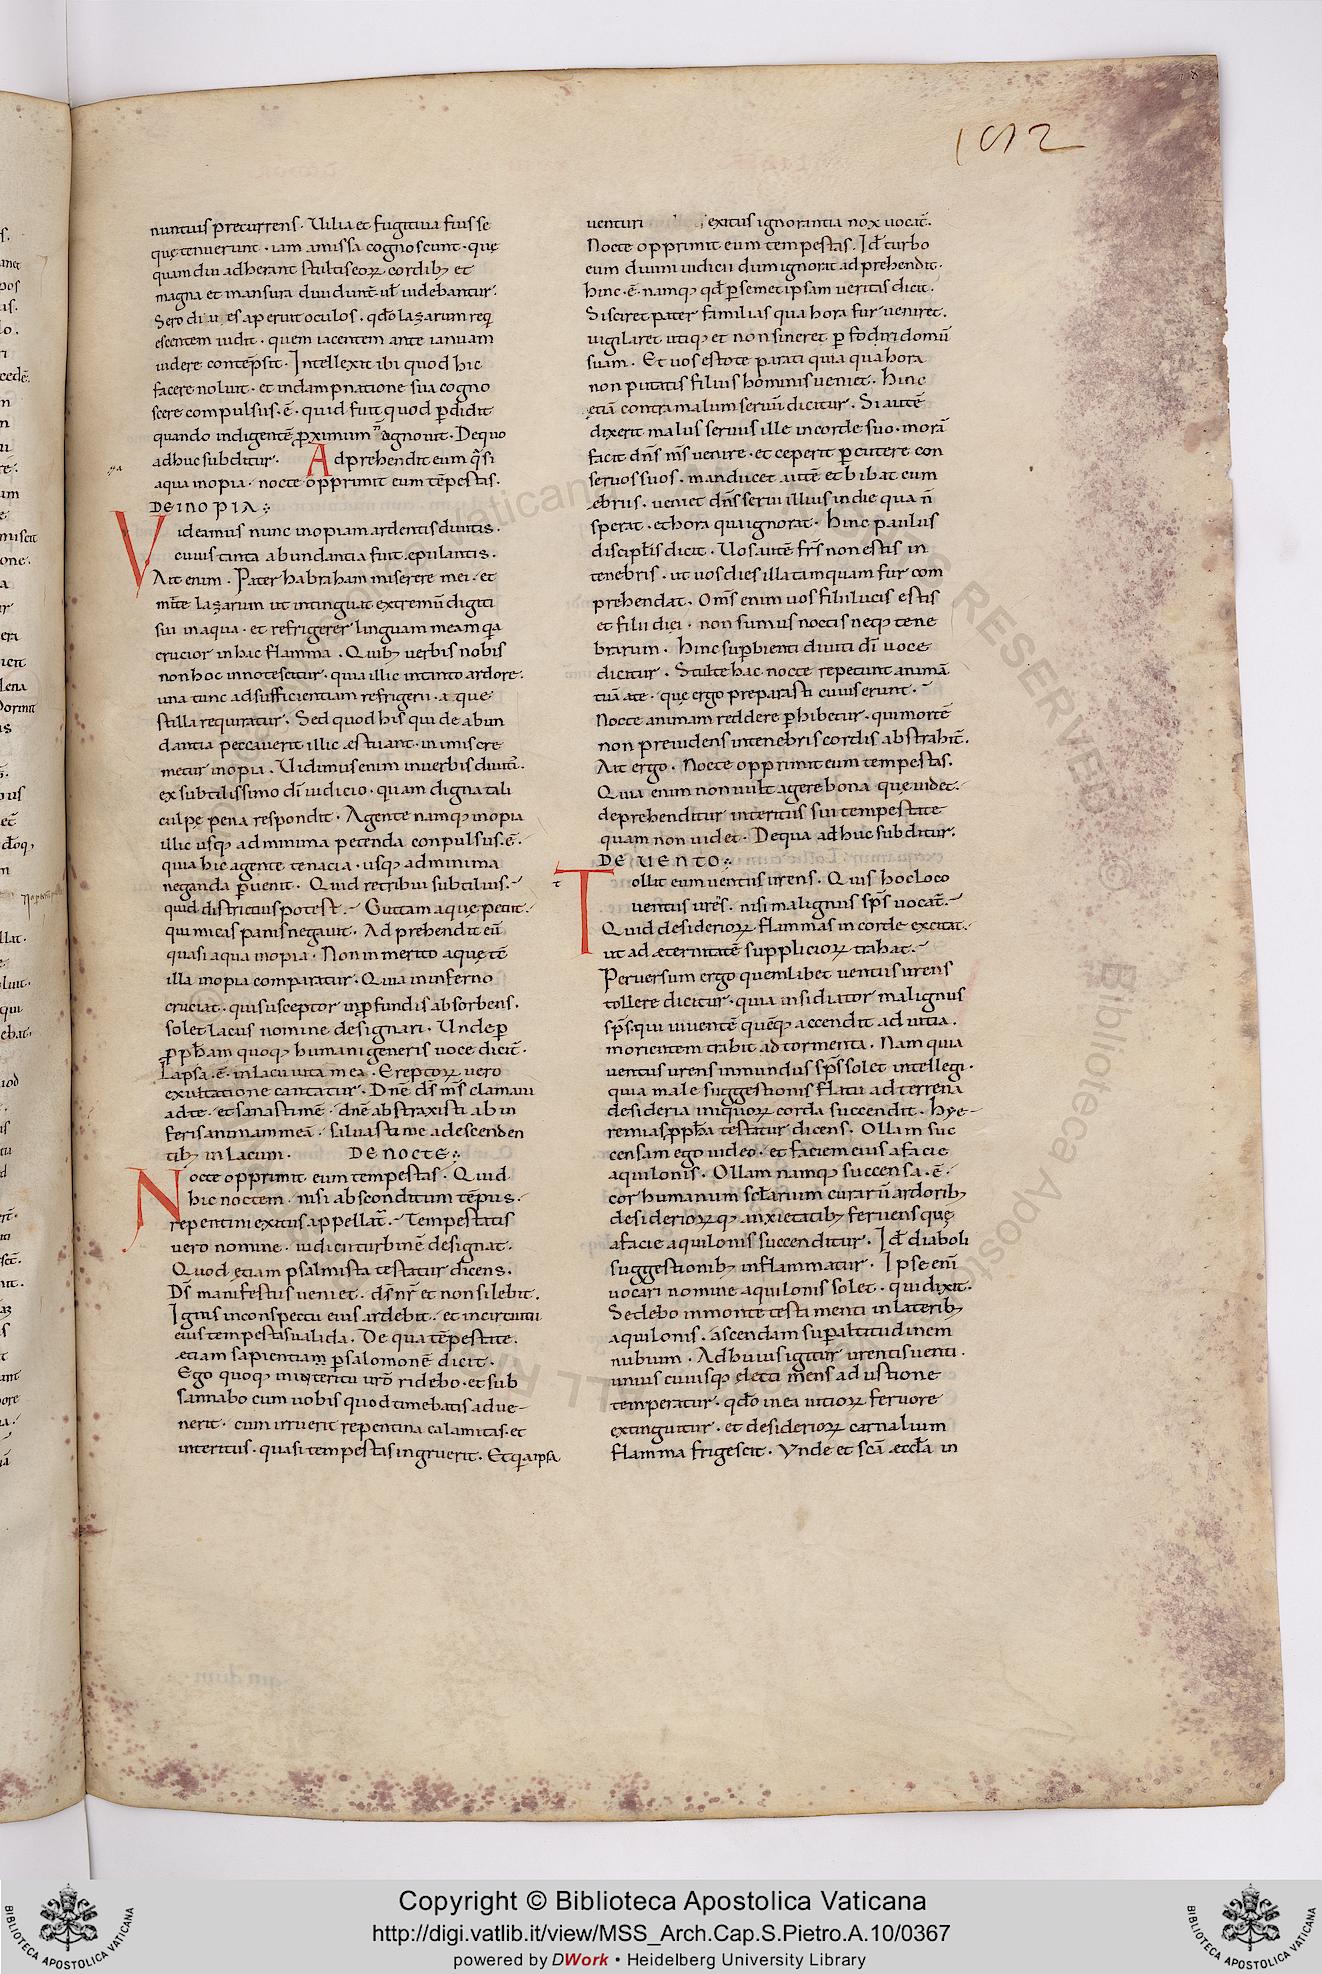 1012
nuntiis precurrens. Vilia et fugitiua fuisse
quę tenuerunt. iam amissa cognoscunt. quę
quamdiu adherant stultis eoꝝ cordibꝫ et
magna et mansura
Sero diues aperuit oculos. qdo lazarum requi
escentem uidit. quem iacentem ante ianuam
uidere contēpsit. Intellexit ibi quod hic
facere noluit. et indampnatione sua cogno
scere compulsus. ē. quid fuit quod ꝑdidit
quando indigentē ꝓximum n̄ agnouit. De quo
adhuc subditur. Adprehendit eum q̄si
aqua inopia. nocte opprimit eum tēpestas.
DE INOPIA
Videamus nunc inopiam ardentis diuitis.
cuius tanta abundantia fuit epulantis.
Ait enim. Pater habraham miserere mei. et
mitte lazarum ut intinguat extremū digiti
sui in aqua. et refrigeret linguam meam qa
crucior in hac flamma. Quibꝫ uerbis nobis
non hoc innotescitur. quia illic in tanto ardore.
una tunc ad sufficientiam refrigerii. aque
stilla requiratur. Sed quod his qui de abun
dantia peccauerit illic estuant. in imis cre
metur inopia. Vidimus enim in uerbis diuitis.
ex subtilissimo di iudicio. quam digna tali
culpę pena respondit. Agente namqꝫ inopia
illic usqꝫ ad minima petenda conpulsus. ē.
quia hic agente tenacia. usqꝫ ad minima
neganda ꝑuenit. Quid retribui subtilius.
quid districtius potest. Guttam aquę petiit.
qui micas panis negauit. Adprehendit eū
quasi aqua inopia. Non inmerito aquę tē
illa inopia comparatur. Quia in inferno
cruciat. qui susceptor in ꝓfundis absorbens.
solet lacus nomine designari. Unde ꝑ
ꝓpham quoqꝫ humani generis uoce dicit.
Lapsa. ē. in lacu uita mea. Ereptoꝝ uero
exultatione cantatur. Dnē ds ms clamaui
ad te. et sanasti mē. dnē abstraxisti ab in
feris animam meā. saluasti me a descenden
tibꝫ in lacum. DE NOCTE
Nocte opprimit eum tempestas. Quid
hic noctem. nisi absconditum tēpus.
repentini exitus appellat. Tempestatis
uero nomine. iudicii turbinē designat.
Quod etiam psalmista testatur dicens.
Ds manifestus ueniet. ds nr et non silebit.
Ignis in conspectu eius ardebit. et in circuitu
eius tempestas ualida. De qua tēpestate.
etiam sapientiam ꝑ salomonē dicit.
Ego quoqꝫ in interitu uro ridebo. et sub
sannabo cum uobis quod timebatis adue-
nerit. cum irruerit repentina calamitas. et
interitus. quasi tempestas ingruerit. Et q̄a ipsa
uenturi exitus ignorantia nox uocat.
Nocte opprimit eum tempestas. Id turbo
eum diuini iudicii dum ignorat adprehendit.
hinc. ē. namqꝫ qd ꝑ semet ipsam ueritas dicit.
Si sciret pater familias qua hora fur ueniret.
uigilaret utiqꝫ et non sineret ꝑfodiri domū
suam. Et uos estote parati quia qua hora
non putatis filius hominis ueniet. hinc
etiā contra malum seruū dicitur. Si autē
dixerit malus seruus ille in corde suo. morā
facit dns ms uenire. et ceperit ꝑcutere con
seruos suos. manducet autē et bibat cum
ebriis. ueniet dns serui illius in die qua n̄
sperat. et hora qui ignorat. hinc paulus
discipulis dicit. Uos autē frs non estis in
tenebris. ut uos dies illa tamquam fur com
prehendat. Oms enim uos filii lucis estis
et filii diei. non sumus noctis neqꝫ tene
brarum. hinc suꝑbienti diuiti di uoce
dicitur. Stulte hac nocte repetunt animā
tuā a te. quę ergo preparasti cuius erunt.
Nocte animam reddere ꝑhibetur. qui mortē
non preuidens in tenebris cordis abstrahit.
Ait ergo. Nocte opprimit eum tempestas.
Quia enim non uult agere bona que uidet.
deprehenditur interitus sui tempestate
quam non uidet. De qua adhuc subditur.
DE UENTO
Tollit eum uentus urens. Quis hoc loco
uentus urēs. nisi malignus sps uocat.
Quid desiderioꝝ flammas in corde excitat.
ut ad æternitatē supplicioꝝ trahat.
Peruersum ergo quemlibet uentus urens
tollere dicitur. quia insidiator malignus
sps. qui uiuentē quēqꝫ accendit ad uitia.
morientem trahit ad tormenta. Nam quia
uentus urens inmundus sps solet intellegi.
quia male suggestionis flatu ad terrena
desideria iniquoꝝ corda succendit. hye-
remias ꝓpha testatur dicens. Ollam suc
censam ego uideo. et faciem eius a facie
aquilonis. Ollam namqꝫ succensa. ē.
cor humanum sclarium curarū ardoribꝫ
desiderioꝝqꝫ anxietatibꝫ feruens quę
a facie aquilonis succenditur. Id diaboli
suggestionibꝫ inflammatur. Ipse enī
uocari nomine aquilonis solet. qui dixit.
Sedebo in monte testamenti in lateribꝫ
aquilonis. ascendam suꝑ altitudinem
nubium. Ad huius igitur urentis uenti.
unius cuiusqꝫ electi mens ad ustione
temperatur. qdo in ea uitioꝝ feruore
extinguitur. et desiderioꝝ carnalium
flamma frigescit. Vnde et scā æccla in
Copyright © Biblioteca Apostolica Vaticana
http://digi.vatlib.it/view/MSS_Arch.Cap.S.Pietro.A.10/0367
powered by DWork • Heidelberg University Library